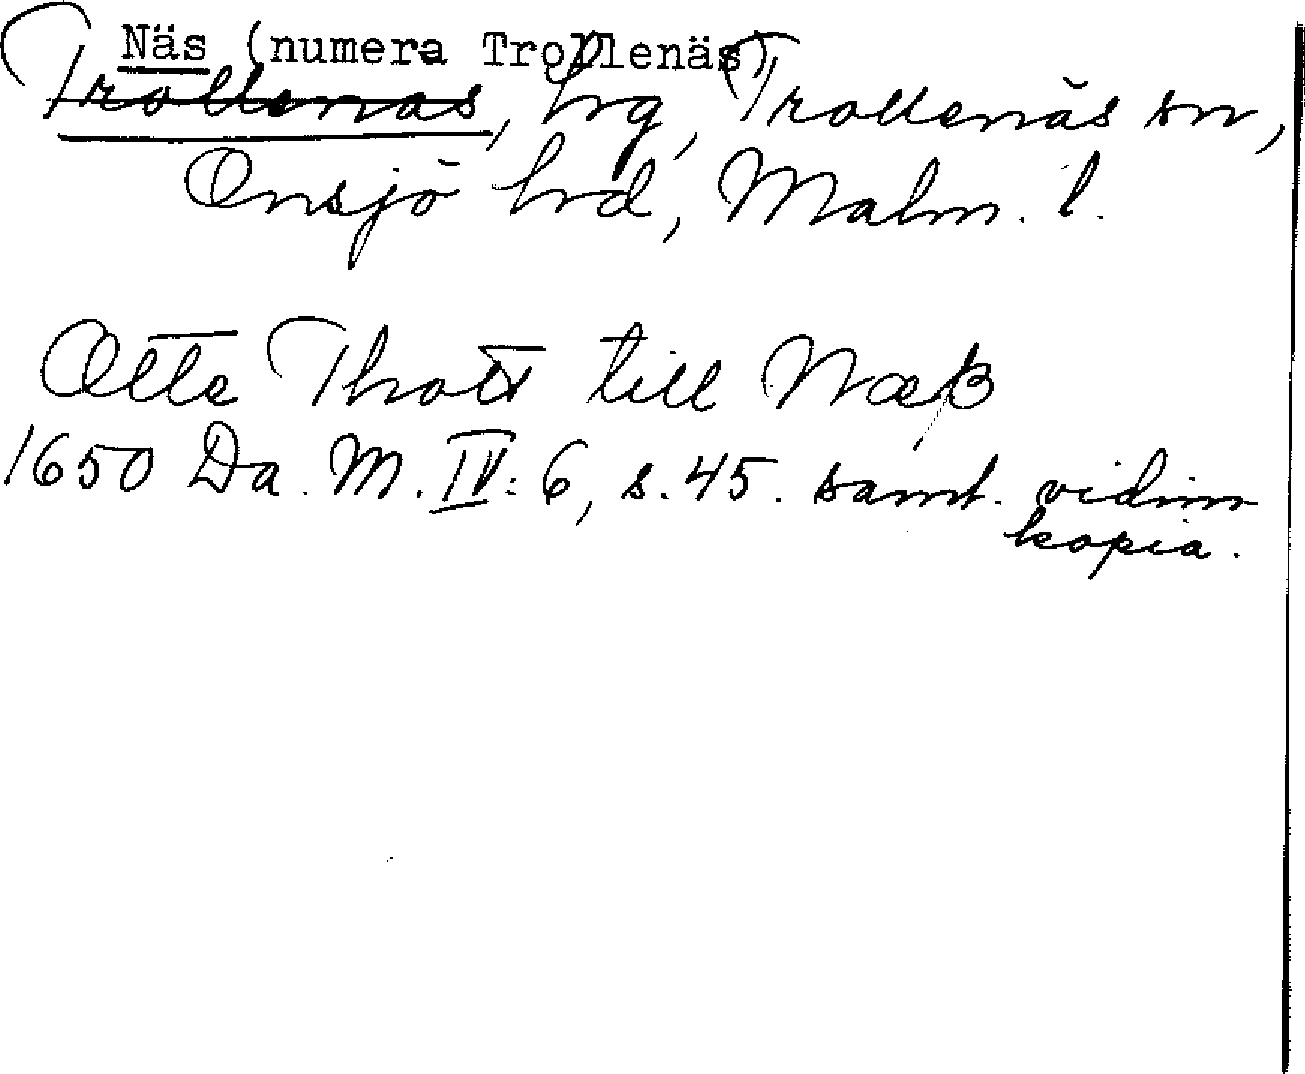 Näs (numera Trollenäs)
Trollenäs, hrg, Trollenäs sn,
Onsjö hrd, Malm. l.
Otte Thott till Næß
1650 Da. M. IV: 6, s. 45. samt. vidim
kopia.